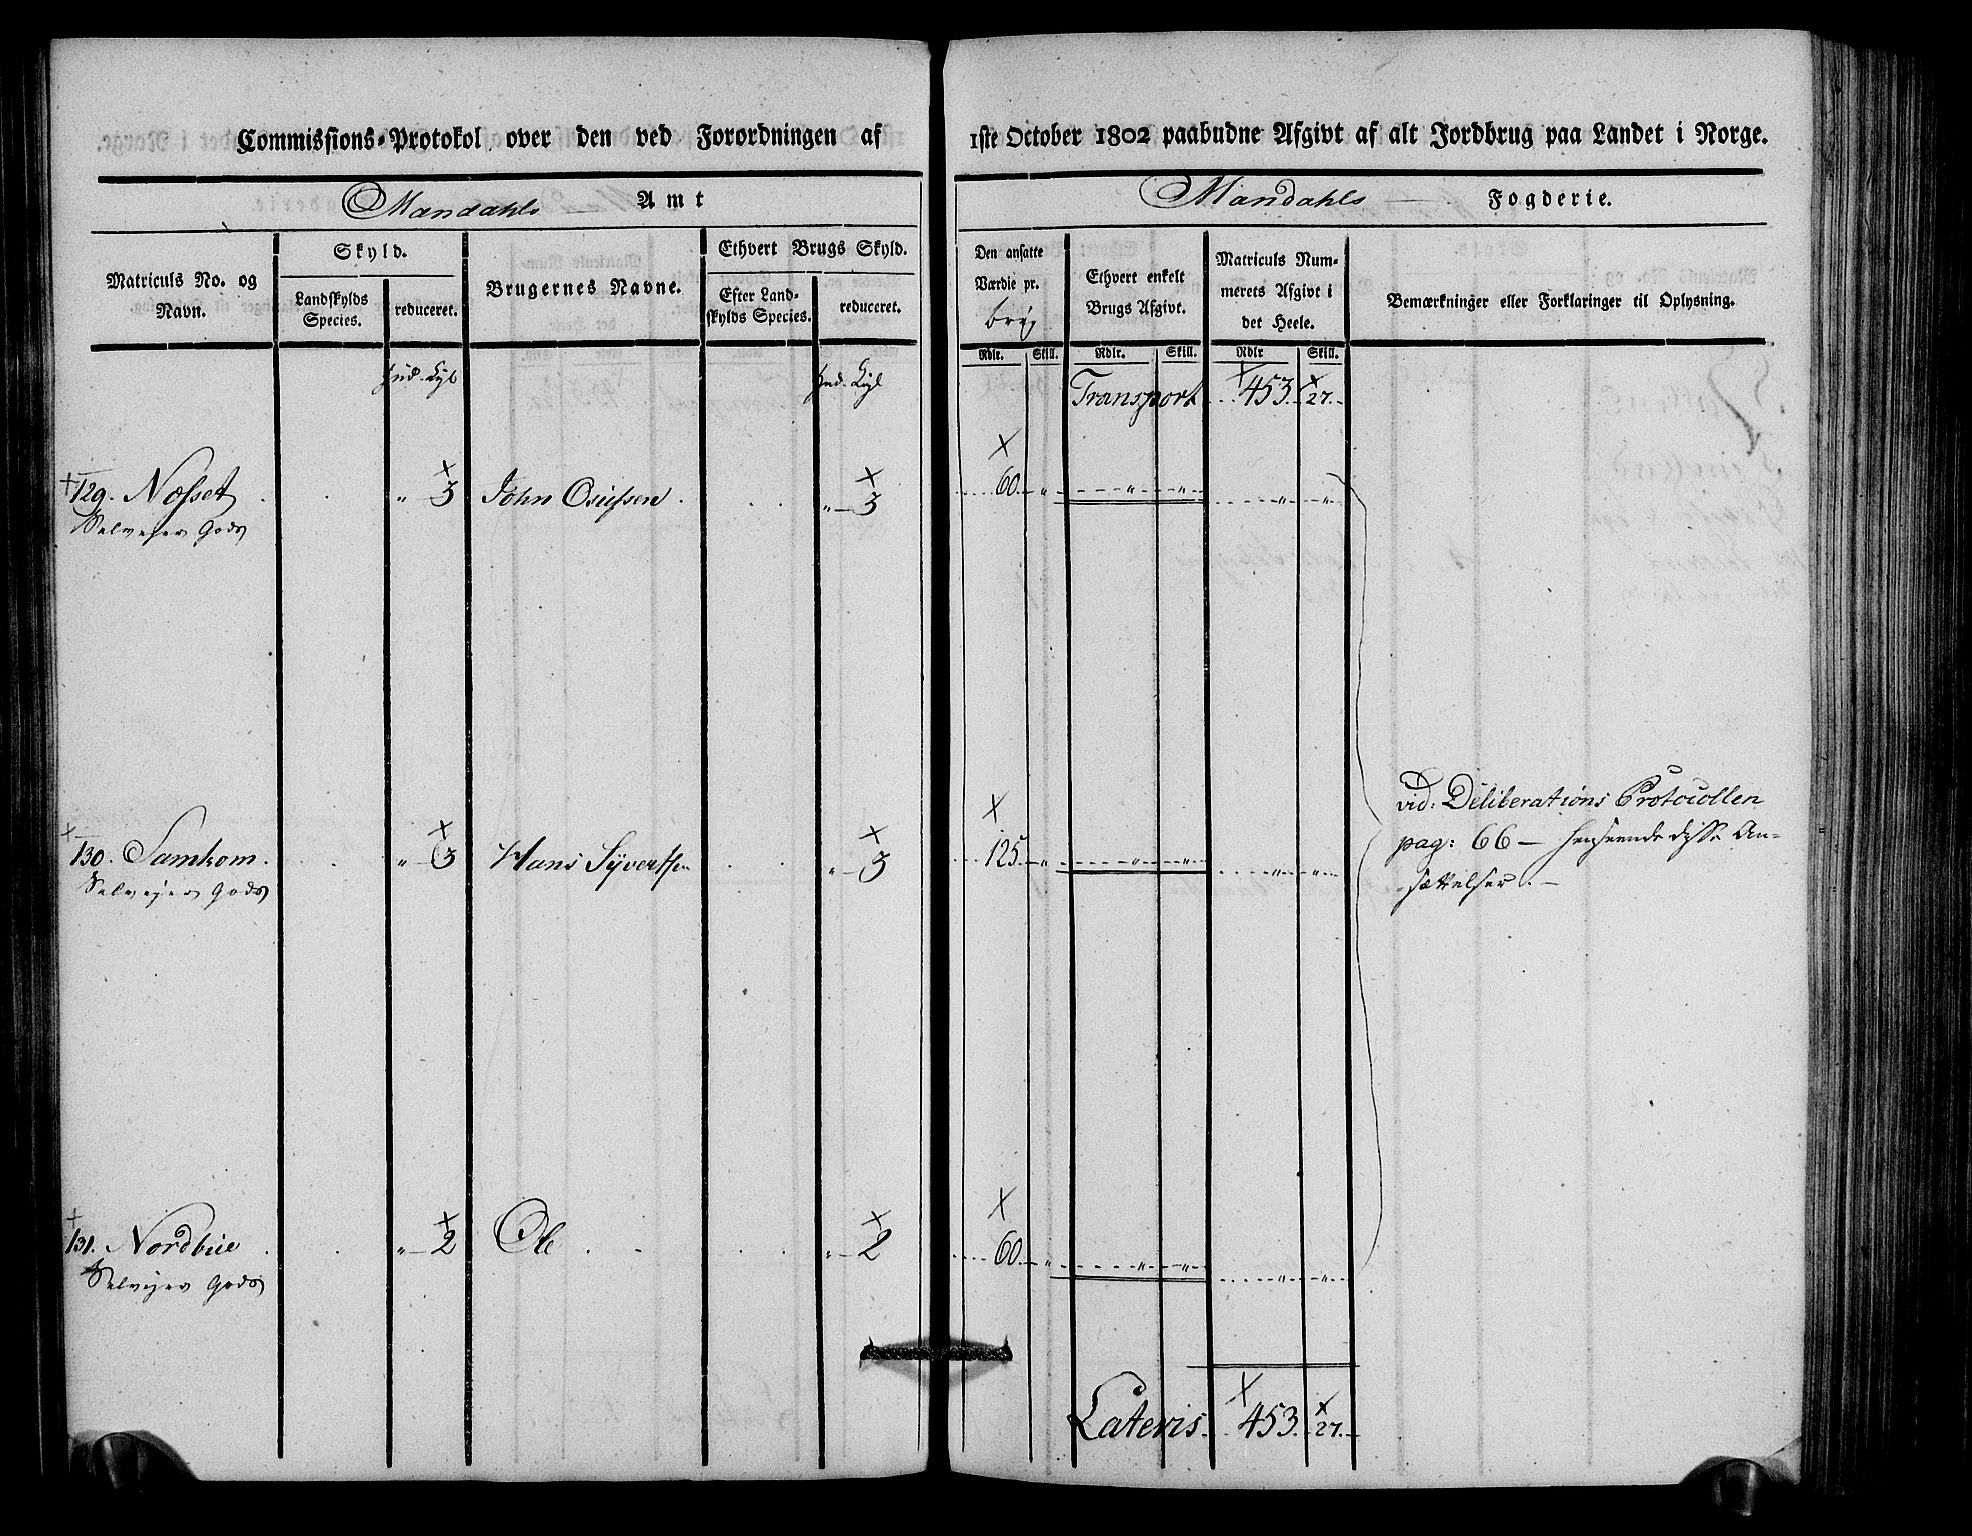 Commissions-Protokol over den ved Forordningen af
Mandahls Amt
Matriculs No. og Navn.
Skyld.
Landskylds Species.
reduceret.
Brugernes Navne.
Ethvert Brugs Skyld.
Efter Landskylds Species.
reduceret.
Hud. Kgl
Hud. Kgl
129. Nosset „ 3 John Osufsen „ 3
Selvejer Gods
130. Samkom „ 3 Hans Syvertss. „ 3
Selvejer Gods
131. Nordbüe „ 2 Ole „ 2
Selvejer Gods
1ste October 1802 paabudne Afgivt af alt Jordbrug paa Landet i Norge.
Mandahls Fogderie.
Den ansatte Værdie pr. brug
Ethvert enkelt Brugs Afgivt.
Matriculs Nummerets Afgivt i det Heele.
Bemærkninger eller Forklaringer til Oplysning.
Rdlr. Skill. Rdlr. Skill. Rdlr Skill.
Transport 453. 27.
60. „ „ „ „ „
125. „ „ „ „ „
vid: Deliberations Protocollen
pag: 66 — henseende disse An-
sættelser. —
60. „ „ „ „ „
Lateris 453. 27.